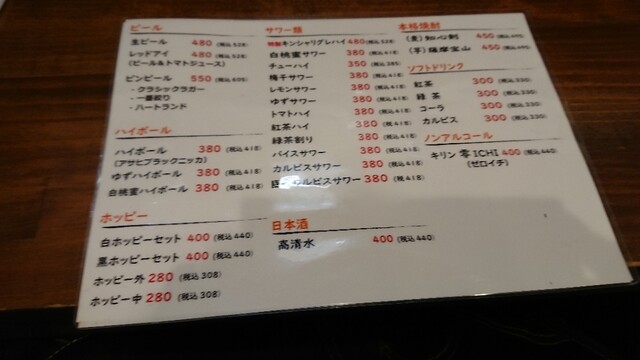 ビール
生ビール 480 (税込528)
レッドアイ 480 (税込528)
(ビール&トマトジュース)
ビンビール 550 (税込605)
・クラシックラガー
・一番絞り
・ハートランド
ハイボール
ハイボール 380 (税込418)
(アサヒブラックニッカ)
ゆずハイボール 380 (税込418)
白桃蜜ハイボール 380 (税込418)
ホッピー
白ホッピーセット 400 (税込440)
黒ホッピーセット 400 (税込440)
ホッピー外 280 (税込308)
ホッピー中 280 (税込308)
サワー類
特製キンシャリグレハイ 480 (税込528)
白桃蜜サワー 380 (税込418)
チューハイ 350 (税込385)
梅干サワー 380 (税込418)
レモンサワー 380 (税込418)
ゆずサワー 380 (税込418)
トマトハイ 380 (税込418)
紅茶ハイ 380 (税込418)
緑茶割り 380 (税込418)
バイスサワー 380 (税込418)
カルピスサワー 380 (税込418)
カルピスサワー 380 (税込418)
日本酒
高清水 400 (税込440)
本格焼酎
(麦) 知心剣 450 (税込495)
(芋) 薩摩宝山 450 (税込495)
ソフトドリンク
紅茶 300 (税込330)
緑茶 300 (税込330)
コーラ 300 (税込330)
カルピス 300 (税込330)
ノンアルコール
キリン 零ICHI 400 (税込440)
(ゼロイチ)